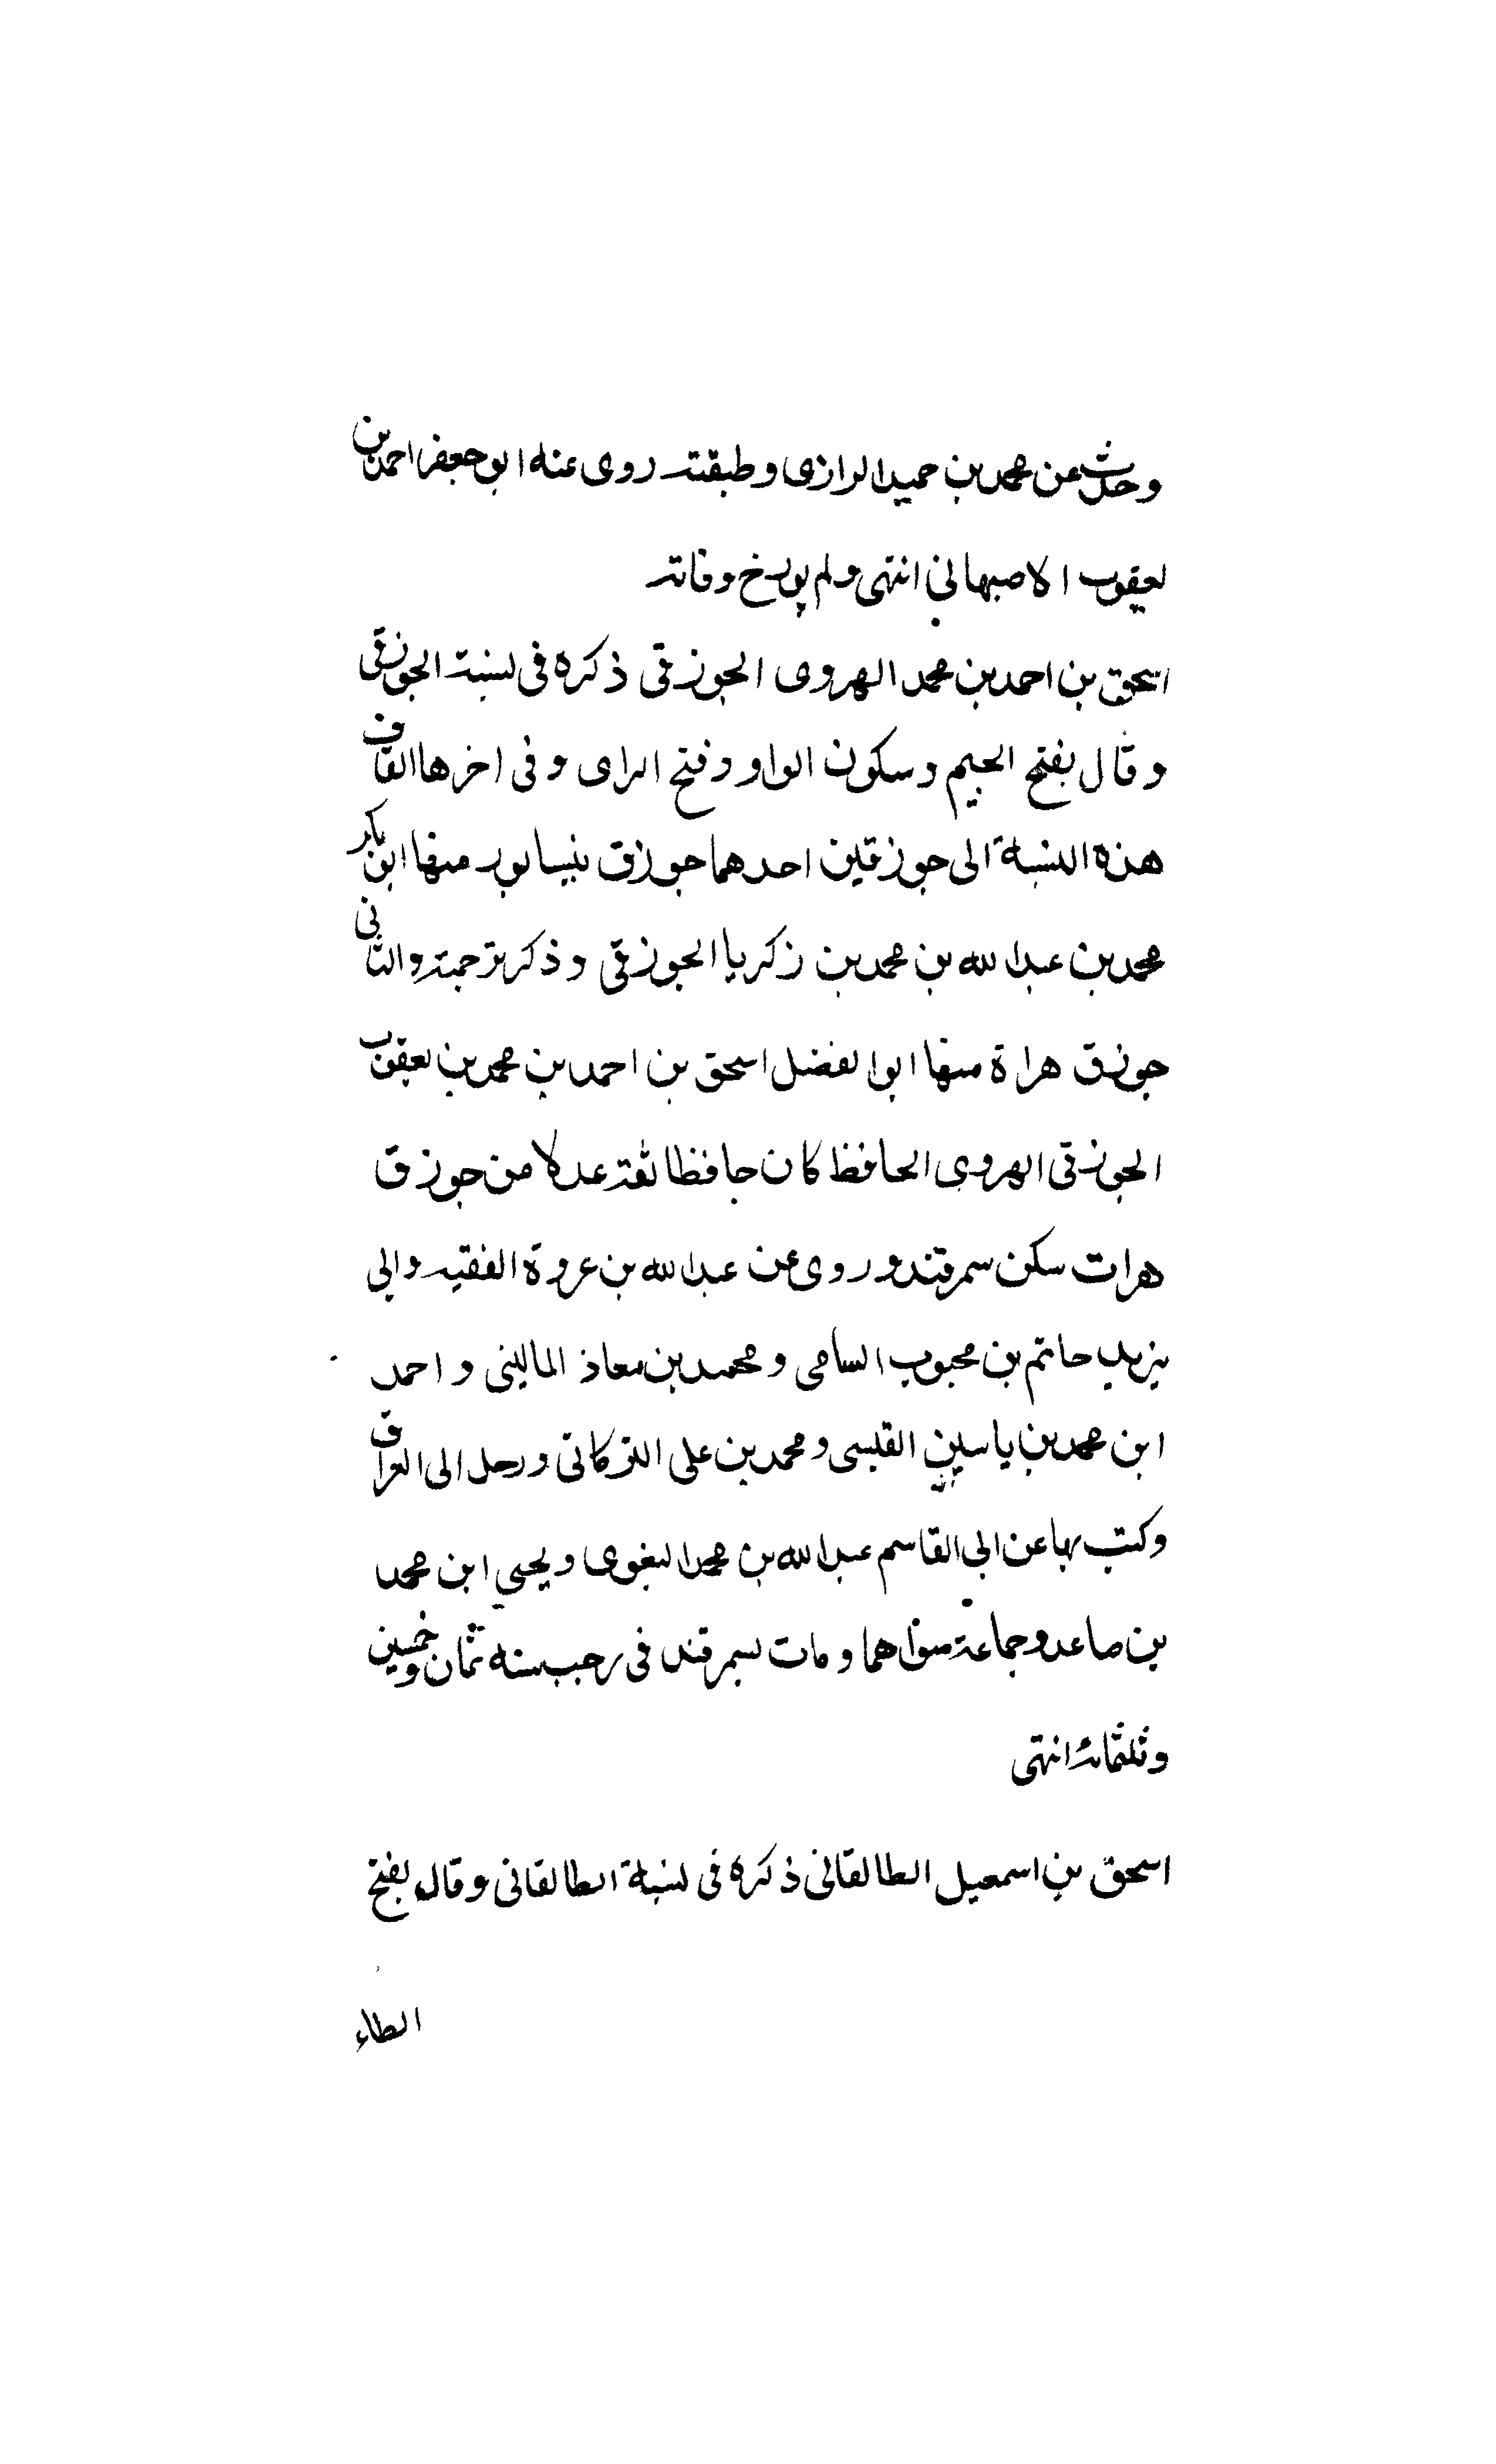 وحدث عن محمد بن حميد الرازى وطبقته روى عنه ابو جعفر احمد بن
يعقوب الاصبهاني انتهى ولم يورخ وفاته
اسحق بن احمد بن محمد الهروى الجوزقى ذكره فى نسبة الجوزقى
وقال بفتح الجيم وسكون الواو وفتح الزاى وفى اخرها القاف
هذه النسبة الى جوزقين احدهما جوزق نيسابور منها ابن بكر
محمد بن عبد الله بن محمد بن زكريا الجوزقى وذكر ترجمته والثانى
جوزق هراة منها ابو الفضل اسحق بن احمد بن محمد بن يعقوب
الجوزقى الهروى الحافظ كان حافظا ثقة عدلا من جوزق
هرات سكن سمرقند وروى عن عبد الله بن عروة الفقيه وابي
يزيد حاتم بن محبوب السامى ومحمد بن معاذ المالينى و احمد
ابن محمد بن ياسين القيسى ومحمد بن على التركاتى ورحل الى العراق
وكتب بها عن ابى القاسم عبد الله بن محمد البغوى ويحيي ابن محمد
بن صاعد وجماعة سواهما ومات بسمرقند فى رجب سنه ثمان وخمسين
وثلثمائة انتهى
اسحق بن اسمعيل الطالقانى ذكره فى نسبة الطالقانى وقال بفتح
الطاء